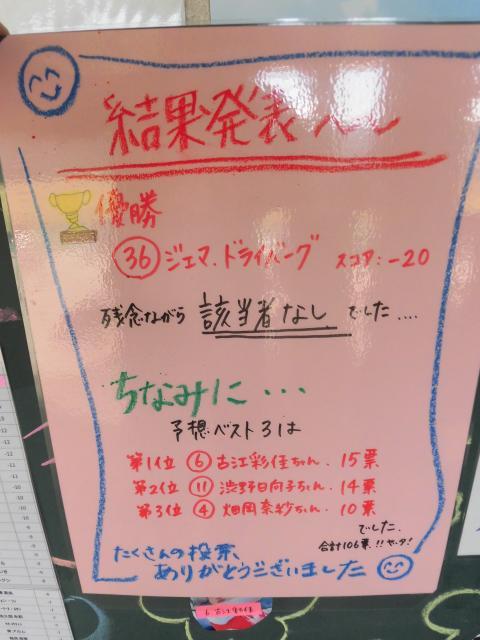 結果発表
優勝
36 ジェマ.ドライバーグ スコア:-20
残念ながら 該当者なし でした....
ちなみに・・・
予想ベスト3は
第1位 6 古江彩佳ちゃん. 15票
第2位 11 渋野日向子ちゃん. 14票
第3位 4 畑岡奈紗ちゃん. 10票
でした.
合計106票!!
たくさんの投票、
ありがとうございました